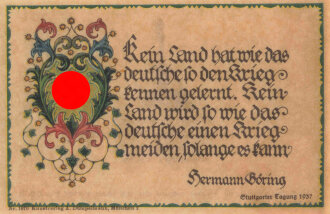 Kein Land hat wie das
deutsche so den Krieg
kennen gelernt. Kein
Land wird so wie das
deutsche einen Krieg
meiden, solange es kann
Hermann Göring
Stuttgarter Tagung 1937